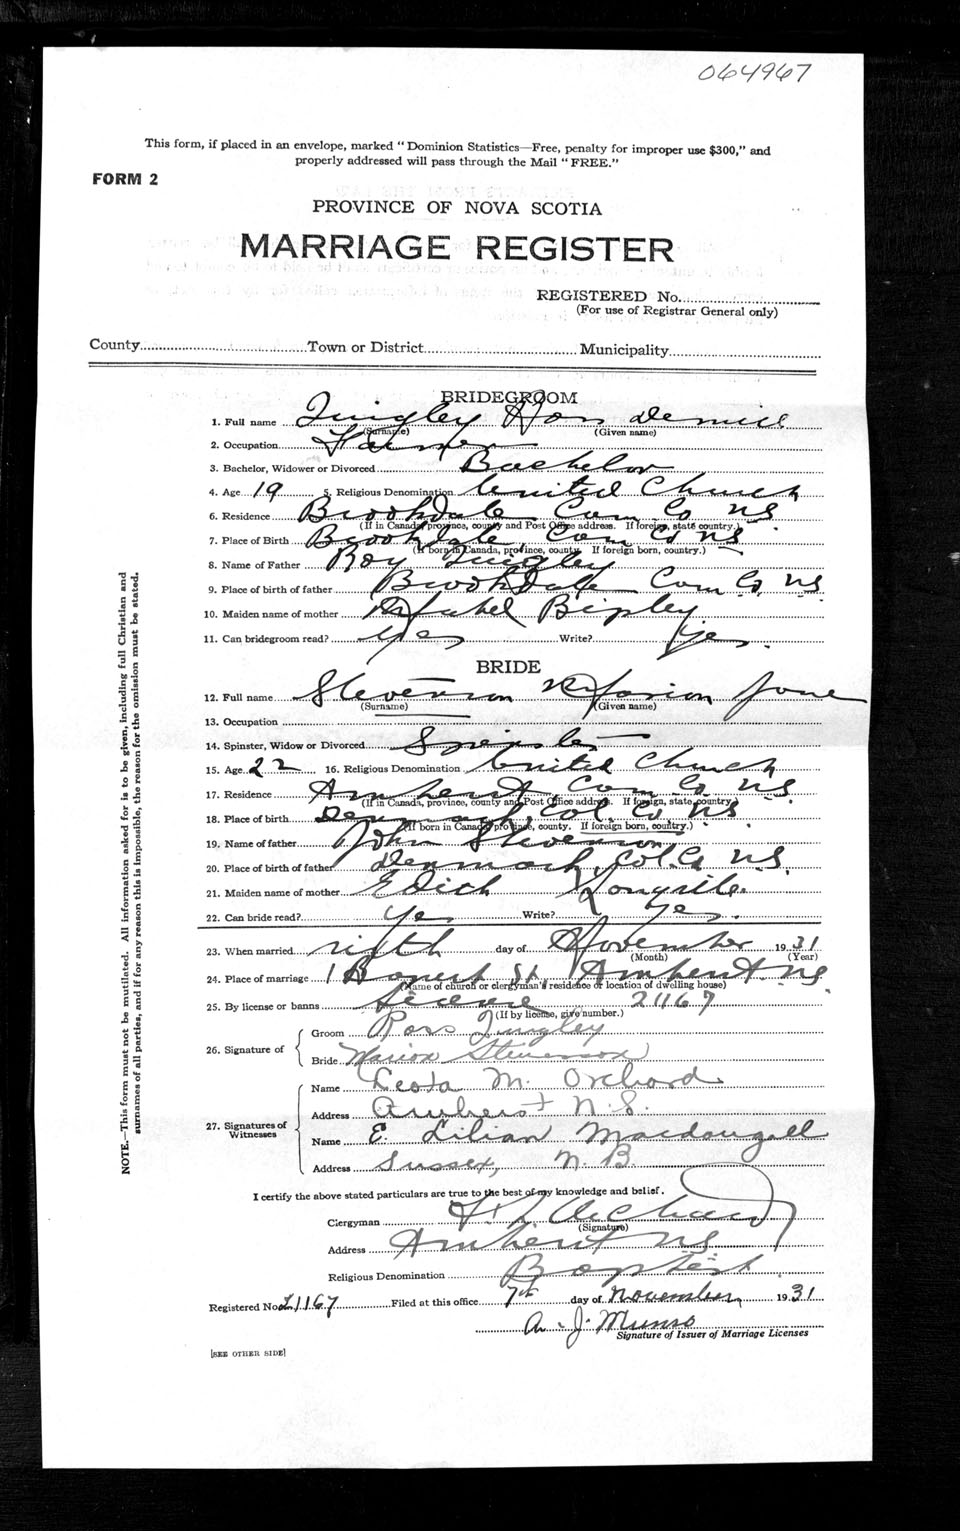 064967
This form, if placed in an envelope, marked "Dominion Statistics—Free, penalty for improper use $300," and
properly addressed will pass through the Mail "FREE."
FORM 2
PROVINCE OF NOVA SCOTIA
MARRIAGE REGISTER
REGISTERED No.
(For use of Registrar General only)
County Town or District Municipality
BRIDEGROOM
1. Full name Tingley Demill
(Surname) (Given name)
2. Occupation Farmer
3. Bachelor, Widower or Divorced Bachelor
4. Age 19 5. Religious Denomination United Church
6. Residence Brookdale Cum Co NS
(If in Canada, province, county and Post Office address. If foreign, state country.)
7. Place of Birth Brookdale Cum Co NS
(If born in Canada, province, county. If foreign born, country.)
8. Name of Father Roy Tingley
9. Place of birth of father Brookdale Cum Co NS
10. Maiden name of mother Mabel Ripley
11. Can bridegroom read? Yes Write? Yes.
BRIDE
12. Full name Stevenson Marion Jane
(Surname) (Given name)
13. Occupation
14. Spinster, Widow or Divorced Spinster
15. Age 22 16. Religious Denomination United Church
17. Residence Amherst Cum Co NS.
(If in Canada, province, county and Post Office address. If foreign, state country.)
18. Place of birth Denmark Col. Co NS.
(If born in Canada, province, county. If foreign born, country.)
19. Name of father John Stevenson
20. Place of birth of father Denmark, Col. Co NS
21. Maiden name of mother Edith
22. Can bride read? Yes Write? Yes.
23. When married day of November 1931
(Month) (Year)
24. Place of marriage St Amherst NS
(Name of church or clergyman's residence or location of dwelling house)
25. By license or banns License 21167
(If by license, give number.)
26. Signature of Groom Ross Tingley
Bride Marion Stevenson
27. Signatures of Witnesses Name Leota M. Orchard
Address Amherst N.S.
Name E. Lilian Macdougall
Address Sussex, N.B.
I certify the above stated particulars are true to the best of my knowledge and belief.
Clergyman Orchard
(Signature)
Address Amherst NS.
Religious Denomination Baptist
Registered No. 21167 Filed at this office 7th day of November, 1931
A. J. Munro
Signature of Issuer of Marriage Licenses
[SEE OTHER SIDE]
NOTE.—This form must not be mutilated. All information asked for is to be given, including full Christian and
surnames of all parties, and if for any reason this is impossible, the reason for the omission must be stated.